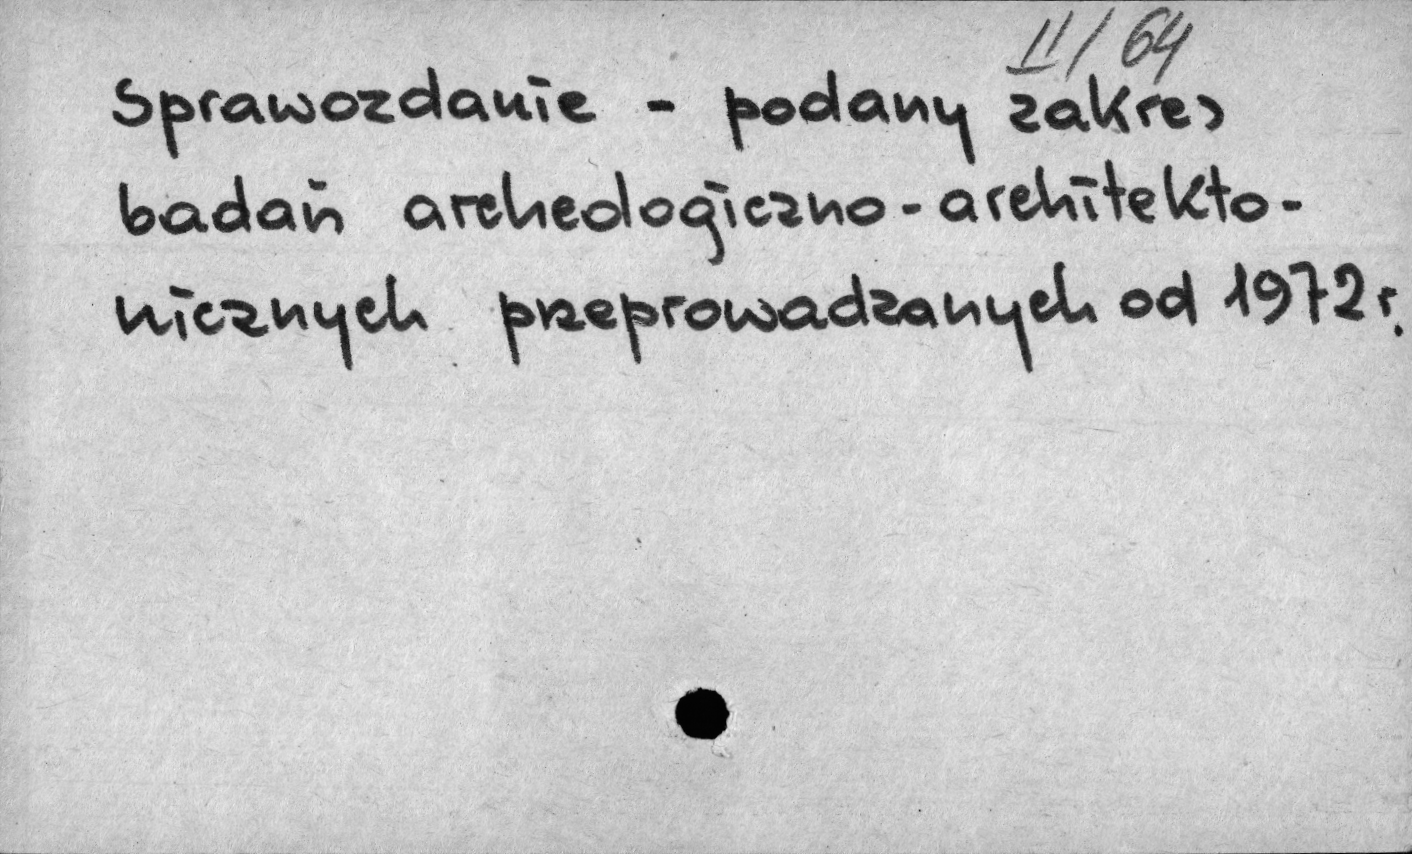 II/64
Sprawozdanie - podany zakres
badań archeologiczno-architekto-
nicznych przeprowadzanych od 1972 r.